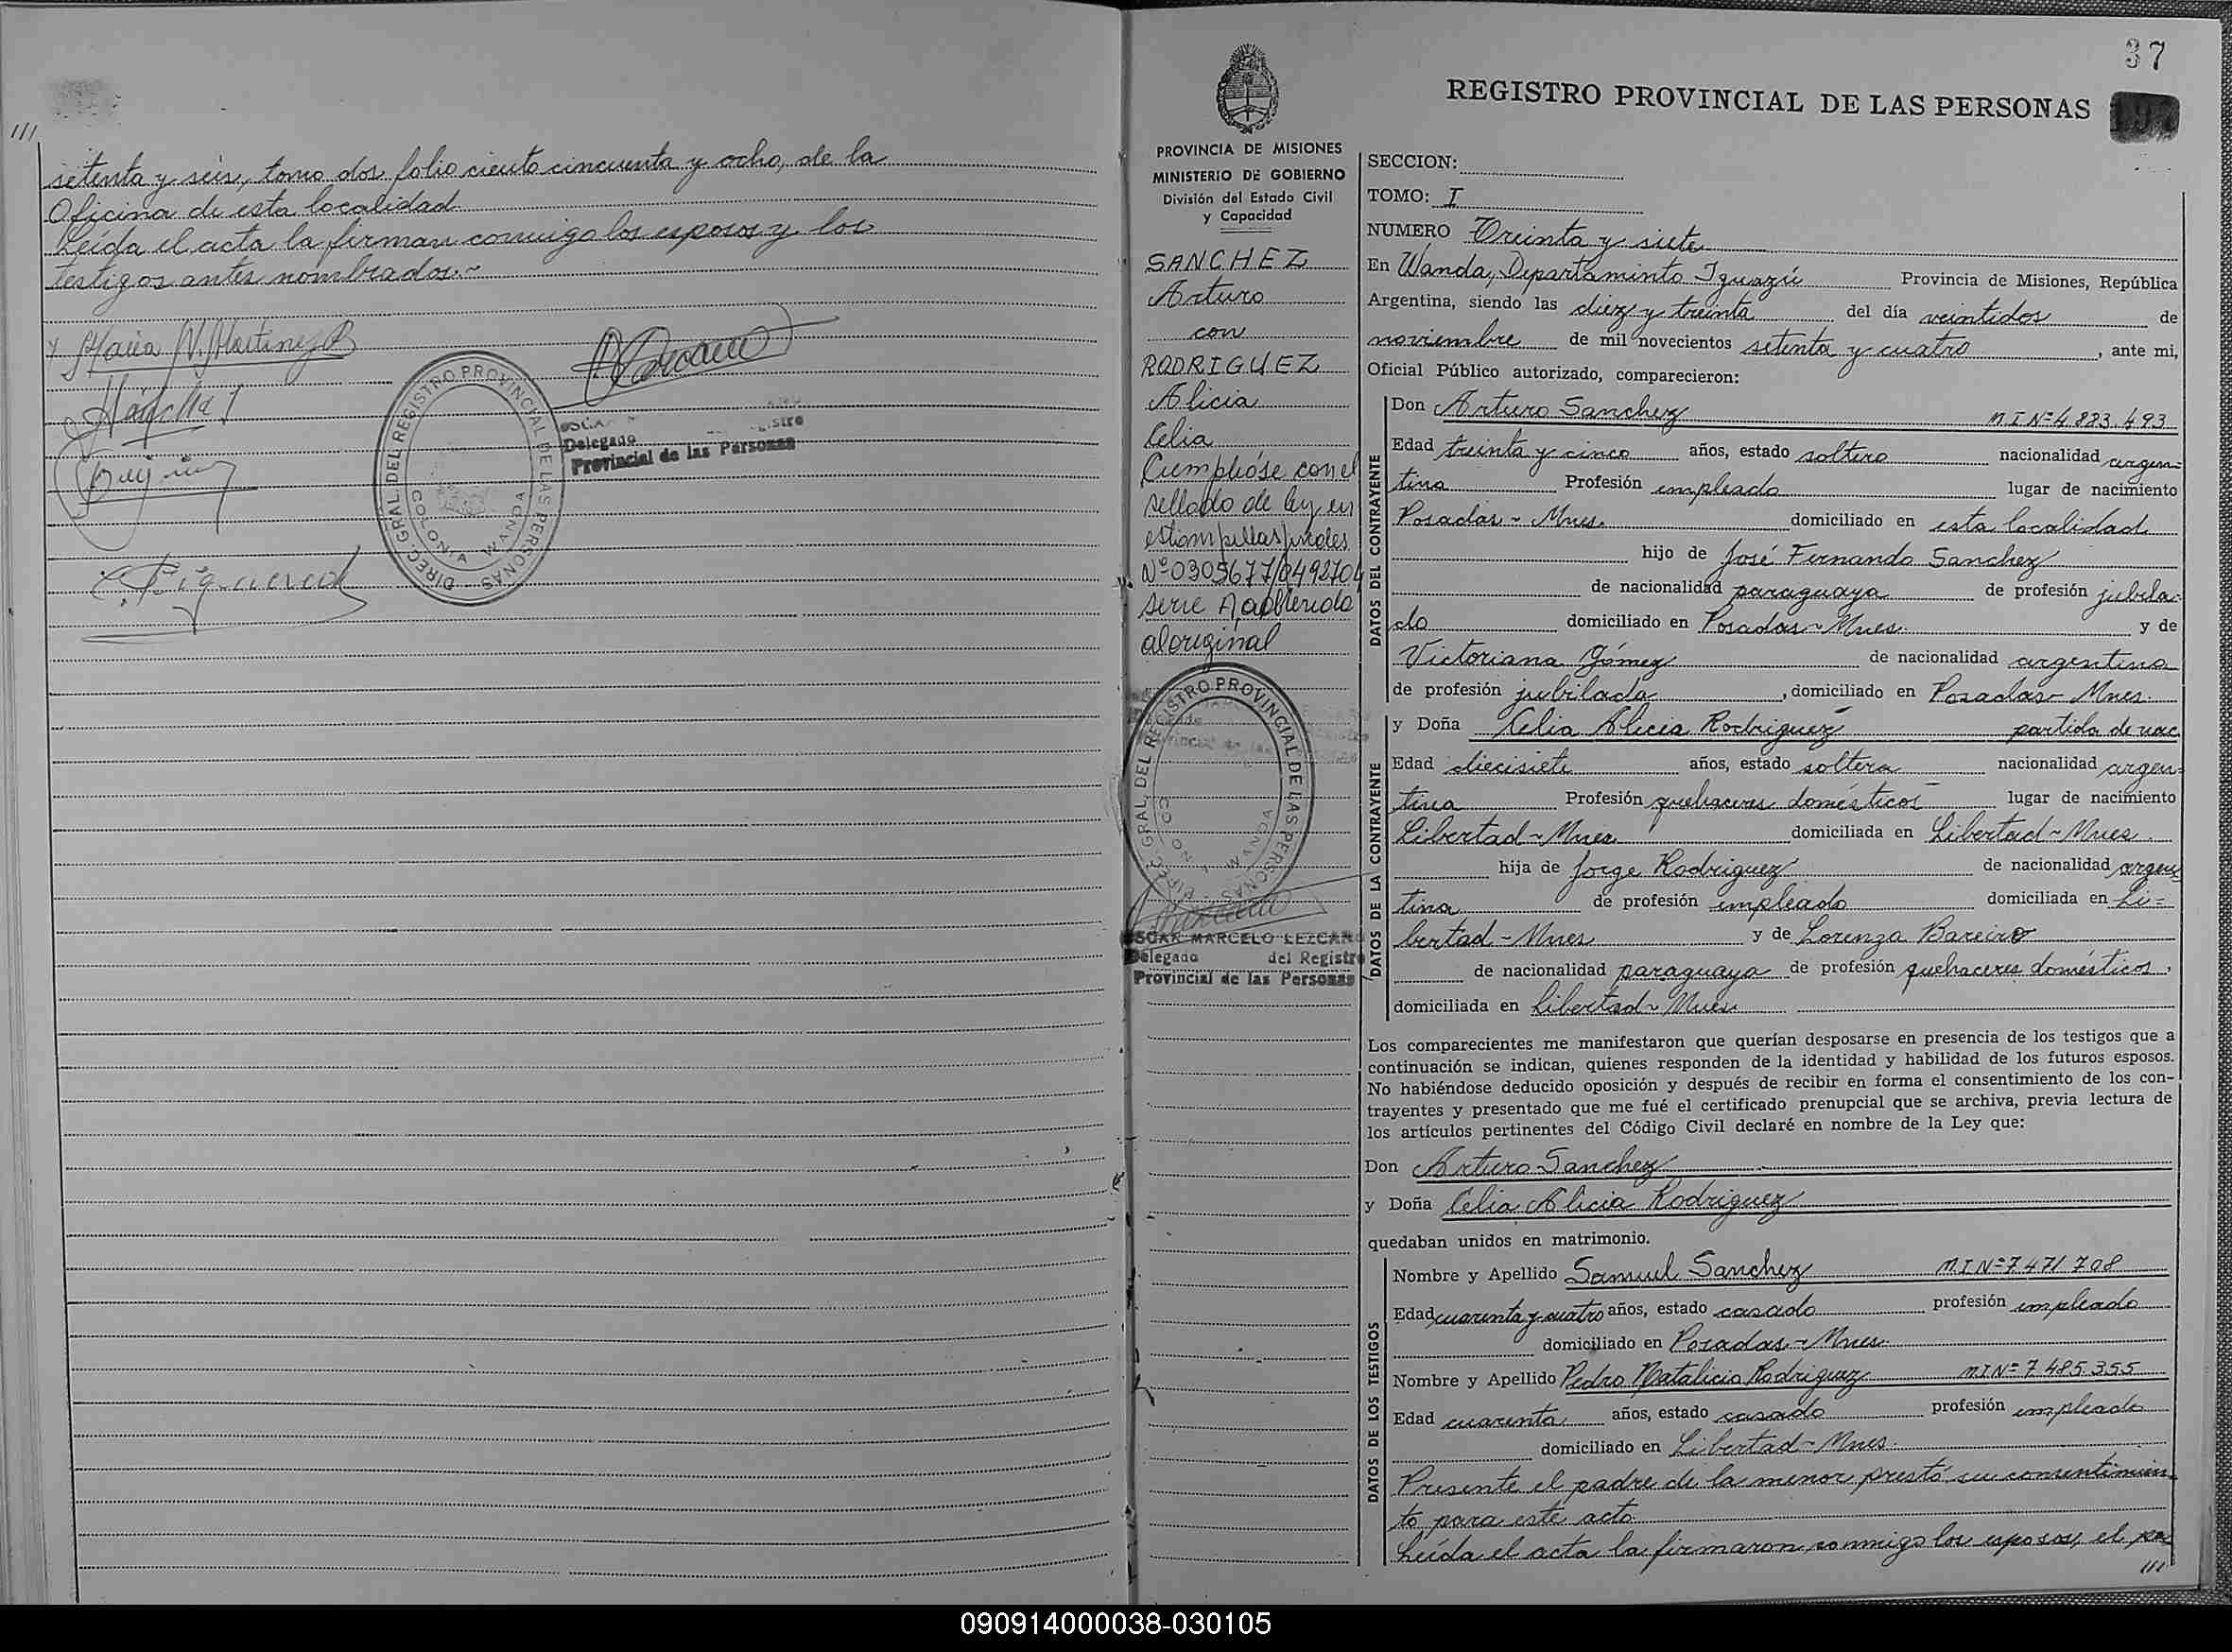 ///
setenta y seis, tomo dos folio ciento cincuenta y ocho, de la
Oficina de esta localidad
Leída el acta la firman conmigo los esposos y los
testigos antes nombrados.~
DIREC. GRAL. DEL REGISTRO PROVINCIAL DE LAS PERSONAS
COLONIA WANDA
Delegado
Provincial de las Personas
37
REGISTRO PROVINCIAL DE LAS PERSONAS
197
PROVINCIA DE MISIONES
MINISTERIO DE GOBIERNO
División del Estado Civil
y Capacidad
SANCHEZ
Arturo
con
RODRIGUEZ
Alicia
Celia
Cumplióse con el
sellado de ley en
estampillas
Nº 0305677/0492704
serie A, adherido
al original
DIREC. GRAL. DEL REGISTRO PROVINCIAL DE LAS PERSONAS
COLONIA WANDA
OSCAR MARCELO LEZCANO
Delegado del Registro
Provincial de las Personas
SECCION:
TOMO: I
NUMERO Treinta y siete
En Wanda, Departamento Iguazú Provincia de Misiones, República
Argentina, siendo las diez y treinta del día veintidos de
noviembre de mil novecientos setenta y cuatro, ante mi,
Oficial Público autorizado, comparecieron:
DATOS DEL CONTRAYENTE
Don Arturo Sanchez M.I Nº 4.883.493
Edad treinta y cinco años, estado soltero nacionalidad argen=
tina Profesión empleado lugar de nacimiento
Posadas ~ Mnes. domiciliado en esta localidad
hijo de José Fernando Sanchez
de nacionalidad paraguaya de profesión jubila=
do domiciliado en Posadas ~ Mnes. y de
Victoriana Gómez de nacionalidad argentina
de profesión jubilada, domiciliado en Posadas - Mnes.
DATOS DE LA CONTRAYENTE
y Doña Celia Alicia Rodriguez partida de nac
Edad diecisiete años, estado soltera nacionalidad argen=
tina Profesión quehaceres domésticos lugar de nacimiento
Libertad ~ Mnes domiciliada en Libertad ~ Mnes.
hija de Jorge Rodriguez de nacionalidad argen
tina de profesión empleado domiciliada en Li=
bertad - Mnes y de Lorenza Bareiro
de nacionalidad paraguaya de profesión quehaceres domésticos,
domiciliada en Libertad ~ Mnes
Los comparecientes me manifestaron que querían desposarse en presencia de los testigos que a
continuación se indican, quienes responden de la identidad y habilidad de los futuros esposos.
No habiéndose deducido oposición y después de recibir en forma el consentimiento de los con-
trayentes y presentado que me fué el certificado prenupcial que se archiva, previa lectura de
los artículos pertinentes del Código Civil declaré en nombre de la Ley que:
Don Arturo Sanchez
y Doña Celia Alicia Rodriguez
quedaban unidos en matrimonio.
DATOS DE LOS TESTIGOS
Nombre y Apellido Samuel Sanchez M.I Nº 7.471.708
Edad cuarenta y cuatro años, estado casado profesión empleado
domiciliado en Posadas ~ Mnes.
Nombre y Apellido Pedro Natalicio Rodriguez M I Nº 7.485.355
Edad cuarenta años, estado casado profesión empleado
domiciliado en Libertad ~ Mnes.
Presente el padre de la menor prestó su consentimien-
to para este acto.
Leída el acta la firmaron conmigo los esposos, el pa
///
090914000038-030105